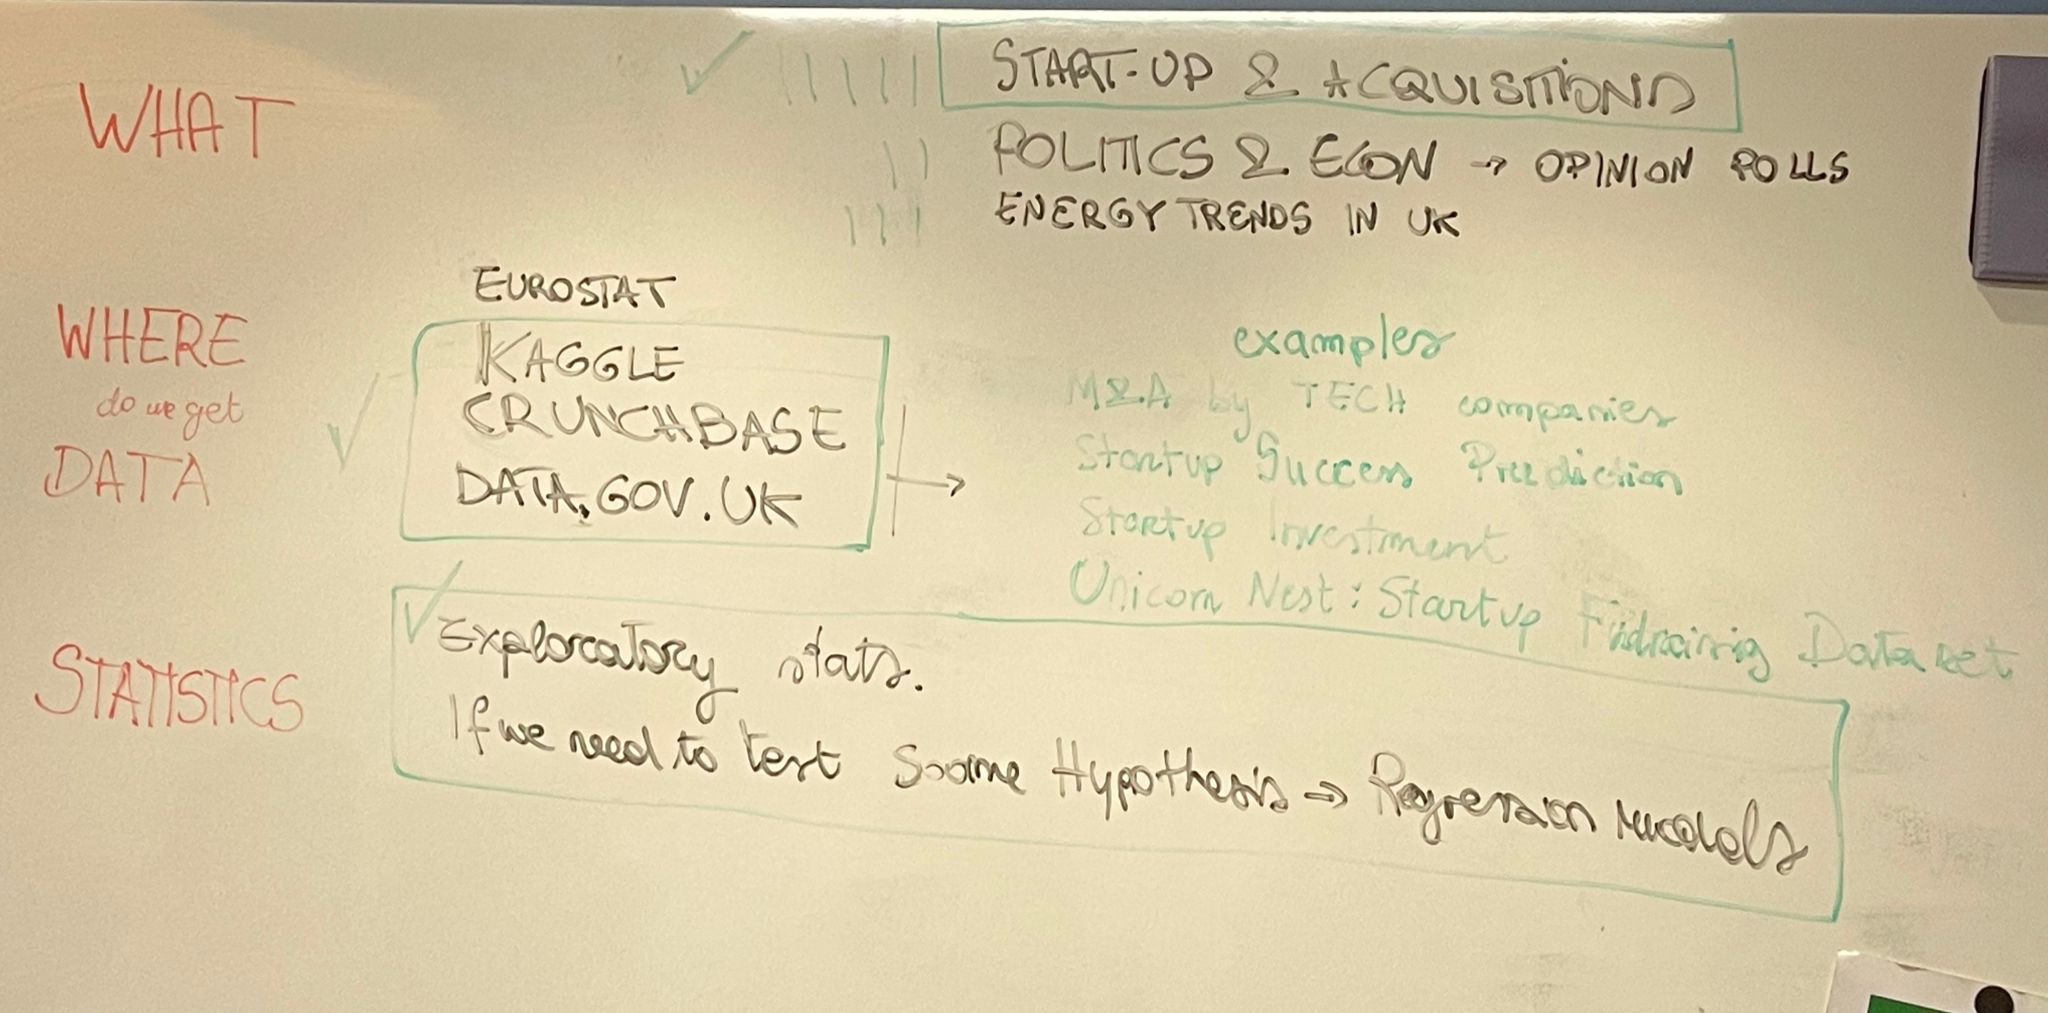 WHAT
START-UP & ACQUISITIONS
POLITICS & ECON → OPINION POLLS
ENERGY TRENDS IN UK
WHERE
do we get
DATA
EUROSTAT
KAGGLE
CRUNCHBASE
DATA.GOV.UK
examples
M&A by TECH companies
Startup Success Prediction
Startup Investment
Unicorn Nest: Startup Fudraising Dataset
STATISTICS
Exploratory stats.
If we need to test some Hypothesis → Regression models